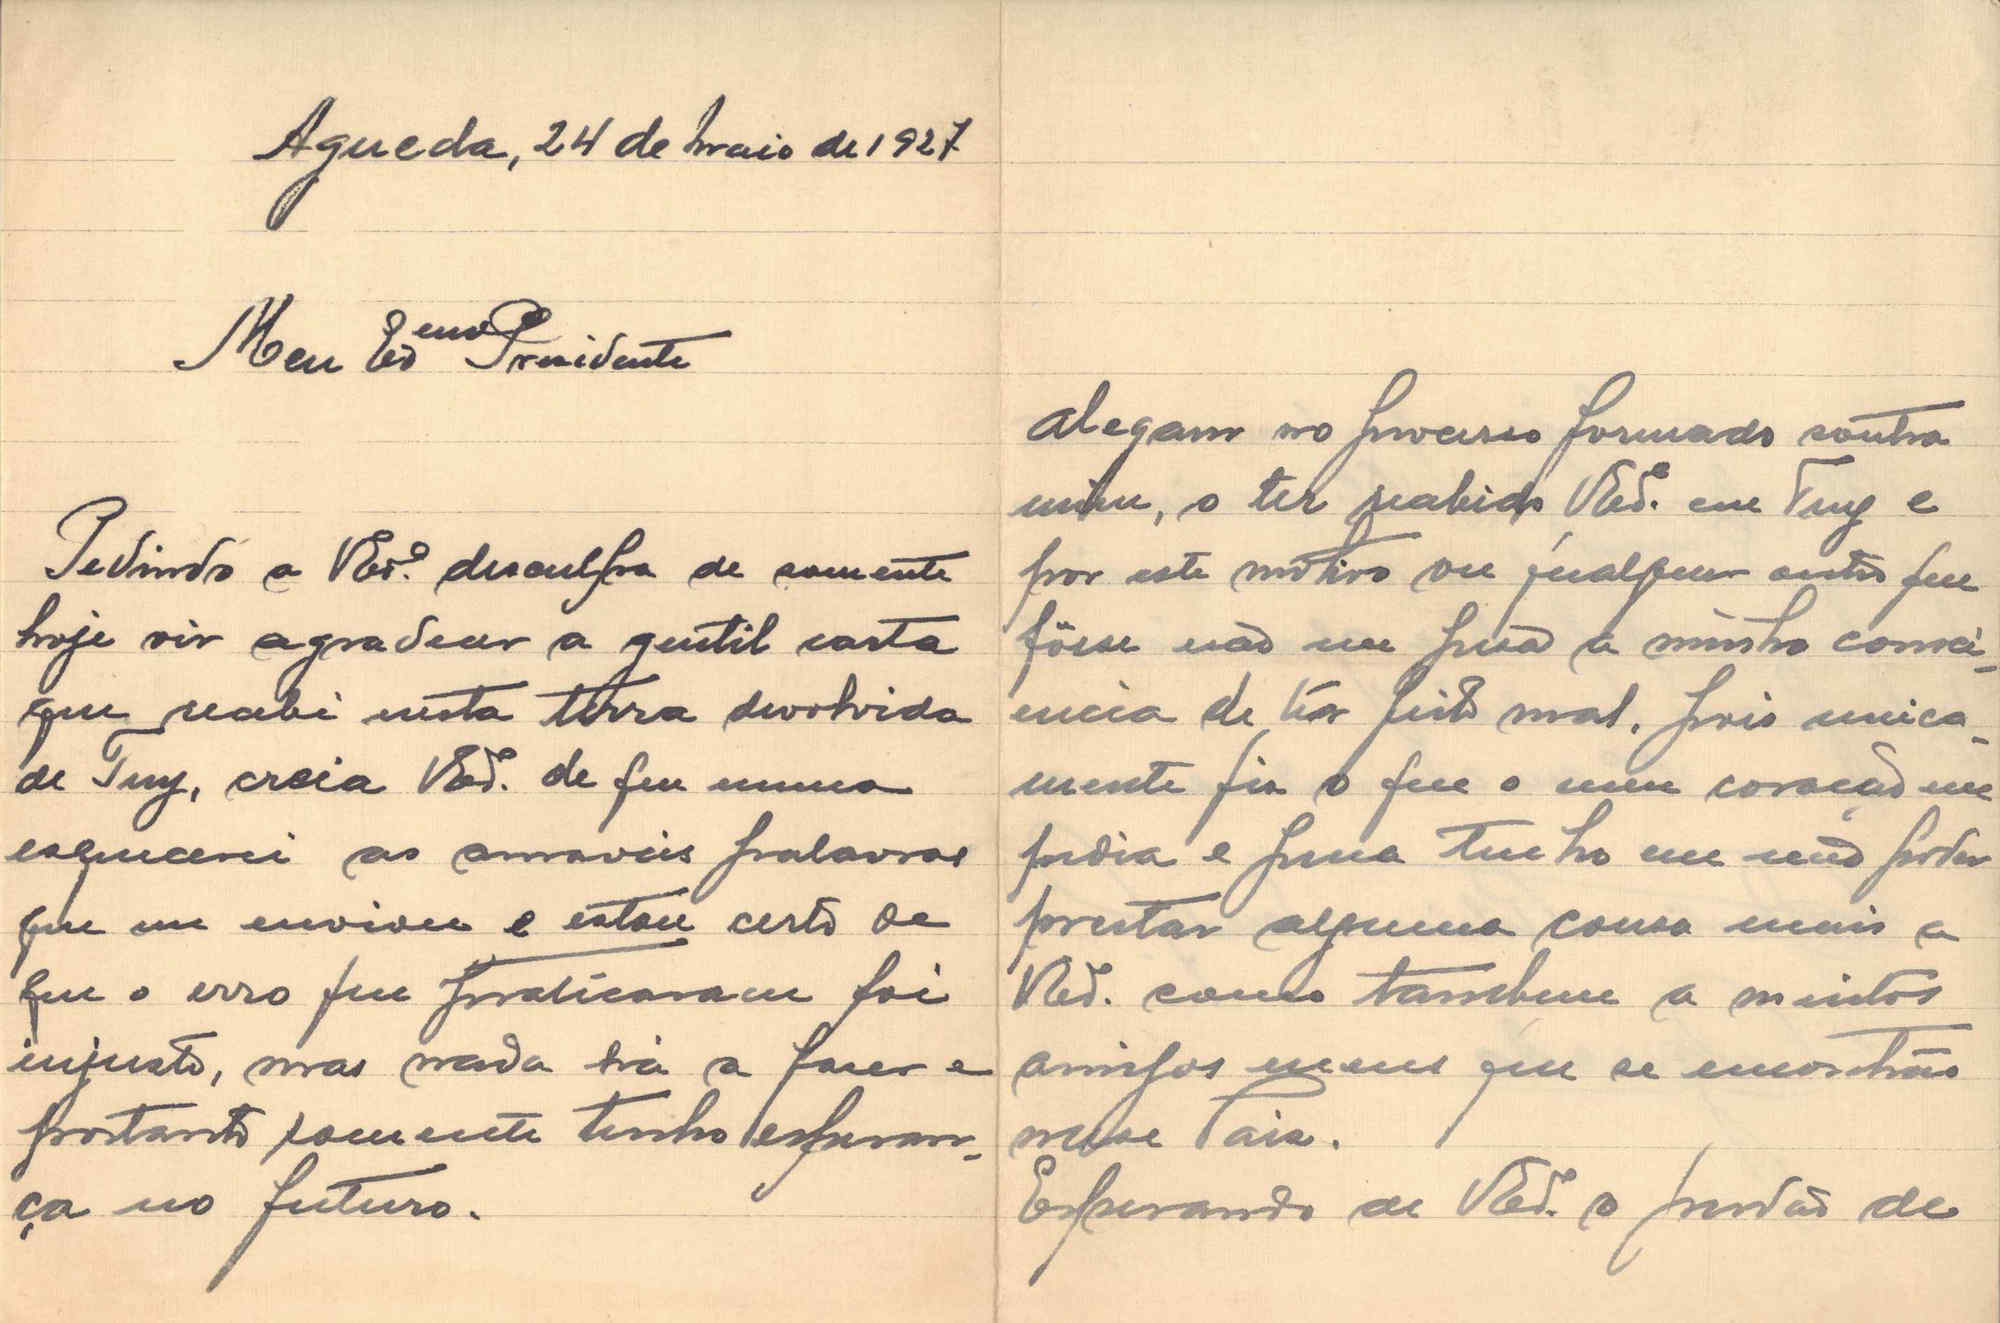 Agueda, 24 de maio de 1927
Meu Exᵐᵒ Presidente
Pedindo a VExª. desculpa de somente
hoje vir agradecer a gentil carta
que recebi nesta terra devolvida
de Tuy, creia VExª. de que nunca
esquecerei as amaveis palavras
que me enviou e estou certo de
que o erro que praticaram foi
injusto, mas nada há a fazer e
portanto somente tenho esperan-
ça no futuro.
alegam no processo formado contra
mim, o ter recebido VExª. em Tuy e
por este motivo ou qualquer outro que
fôsse não me pesa a minha consci-
encia de ter feito mal, pois unica-
mente fiz o que o meu coração me
pedia e pena tenho em não poder
prestar alguma cousa mais a
VExª. como tambem a muitos
amigos meus que se encontrão
nesse Pais.
Esperando de VExª. o perdão de